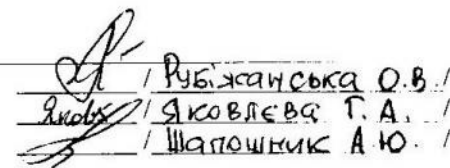 / Рубіжанська О.В. /
/ Яковлєва Т. А. /
/ Шапошник А.Ю. /